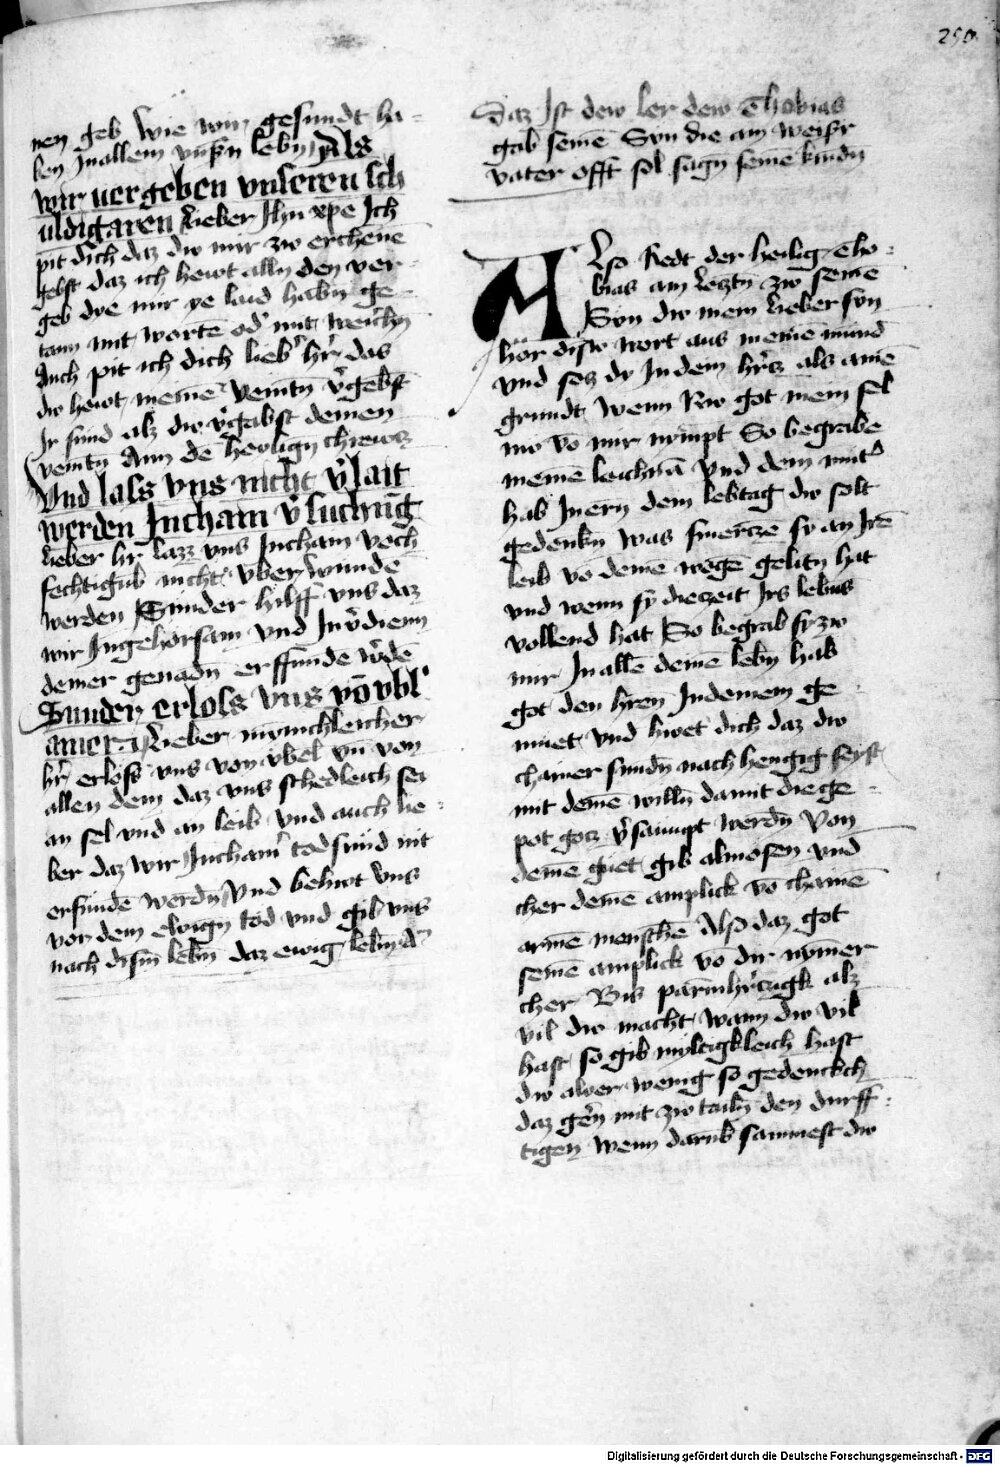 250
nen geb wie wir gesundt ha-
ben Inallem vnsn̄ lebn̄ Als
wir uergeben vnseren sch
uldigaren Lieber Jhu xpe Ich
pit dich daz dw mir zw erchēnē
gebst daz ich hewt alln̄ den ver-
geb dye mir ye laid habn̄ ge-
tann mit wortē od' mit werchn̄
Auch pit ich dich lieb' h'r das
dw hewt meinē veintn̄ v'gebst
Ir sund alz dw v'gabst deinen
veintn̄ Ann dē heylign̄ chrewcz
Vnd lass vns nicht v'lait
werden Incham v'suchūg
Lieber h'r lazz vns Incham vech
fechtigūb nicht vberwūnde
werden Sunder hilff vns daz
wir Ingehorsam vnd Inv'dienn
deiner genadn̄ erffūnde w'dē
Sunder erlols vns vō vbl'
amen Lieber mynichleicher
h'r erloss vns von vbel vn̄ von
allen dem daz vns schedleich sei
an sel vnd an leib vnd auch lie-
ber daz wir Incham' tod sund nit
erfundē werdn̄ Vnd behuet vns
vor dem ewign̄ tod vnd gib vns
nach dism̄ lebn̄ daz ewig lebn̄ A'
Daz Ist dew ler dew Thobias
gab seinē Sun die ain weiser
vater offt sol sagn̄ seinē kindn̄
Also Redt der heilig Tho-
bias am leztn̄ zw seinē
Sun dw mein Lieber sun
hör disw wort aus meinē mund
vnd secz dy In dein h'rcz als ainē
grundt Wenn Nw got mein sel
nw vō mir nympt So begrabe
meinē leichnā Vnd dein mut'
hab In ern̄ dein lebtag dw solt
gedenkn̄ was smerczē sy an Irē
leib vō deinē wegē gelitn̄ hat
vnd wenn sy die zeit Irs lebns
vollend hat So begrab sy zw
mir In allē deinē lebn̄ hab
got den h'ren Indeinem ge
muet vnd huet dich daz dw
chainer sundn̄ nach hengig seyst
mit deinē willn̄ damit die ge-
pot gotz v'saumpt werdn̄ Von
deinē guet gib almosen vnd
cher deinē amplick vō chainē
armē menschē Also daz got
seinē amplick vō dir nymer
cher Bis parmh'rczigk alz
vil dw macht wann dw vil
hast so gib miltigkleich hast
dw aber wenig so gedenckch
daz gern̄ mit zw tailn̄ den durff-
tigen wenn darūb sammest dw
Digitalisierung gefördert durch die Deutsche Forschungsgemeinschaft - DFG